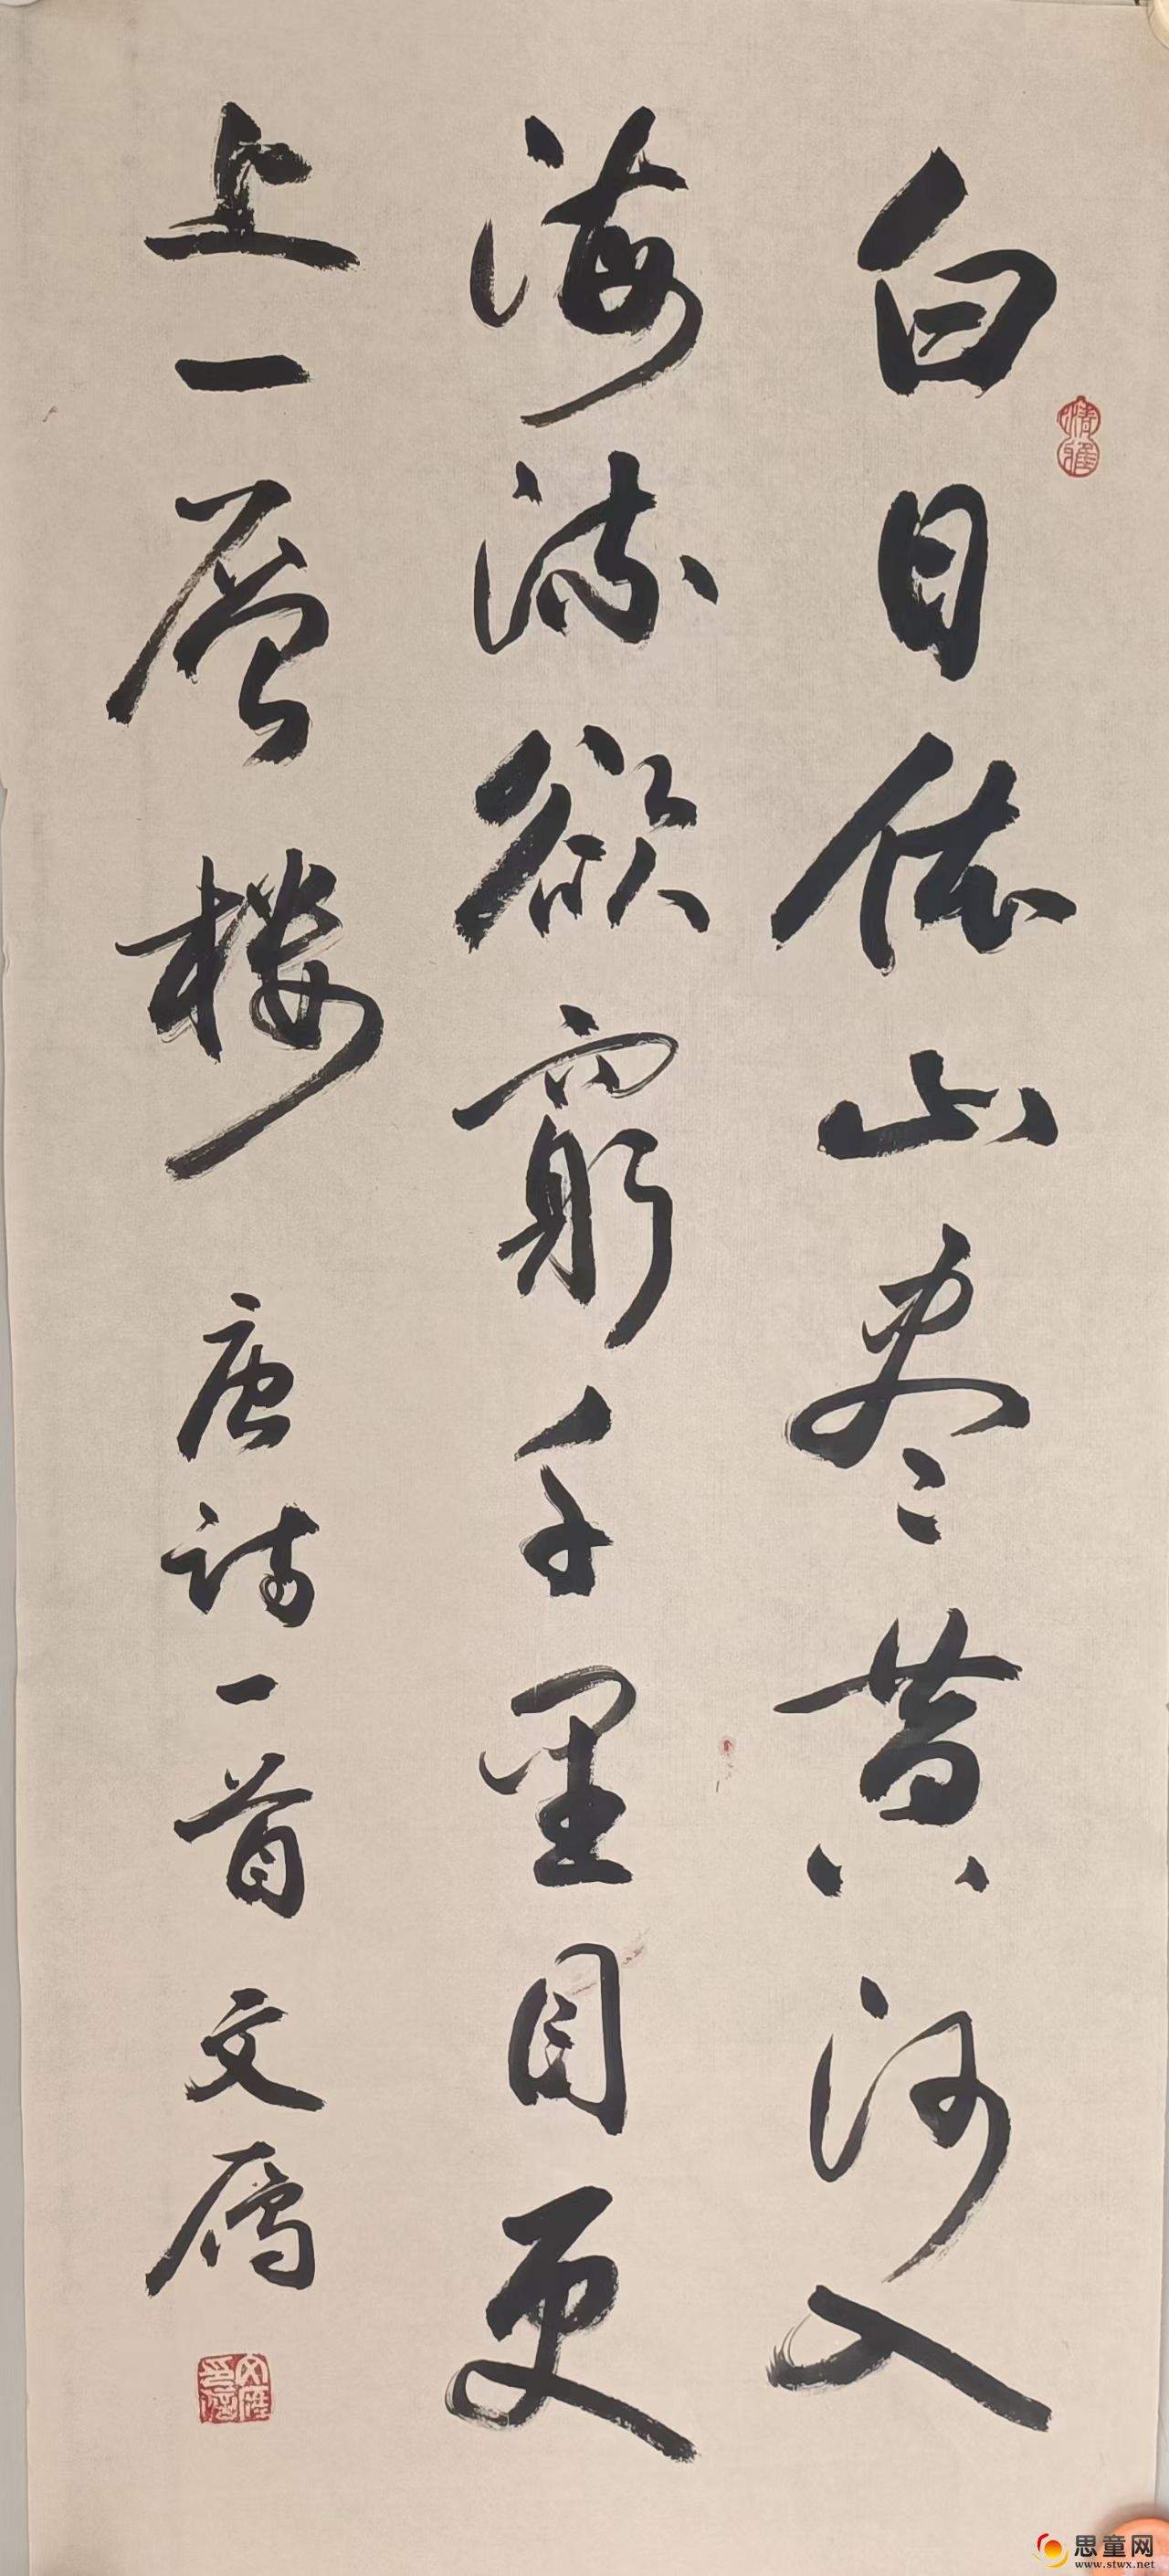 白日依山尽黄河入
海流欲穷千里目更
上一层楼 唐诗一首 文雁
思童网
www.stwx.net